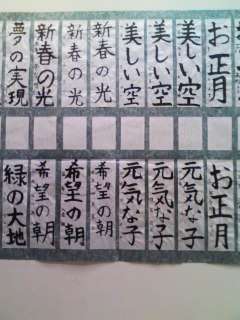 お正月
美しい空
美しい空
美しい空
新春の光
新春の光
新春の光
夢の実現
お正月
元気な子
元気な子
元気な子
希望の朝
希望の朝
希望の朝
緑の大地